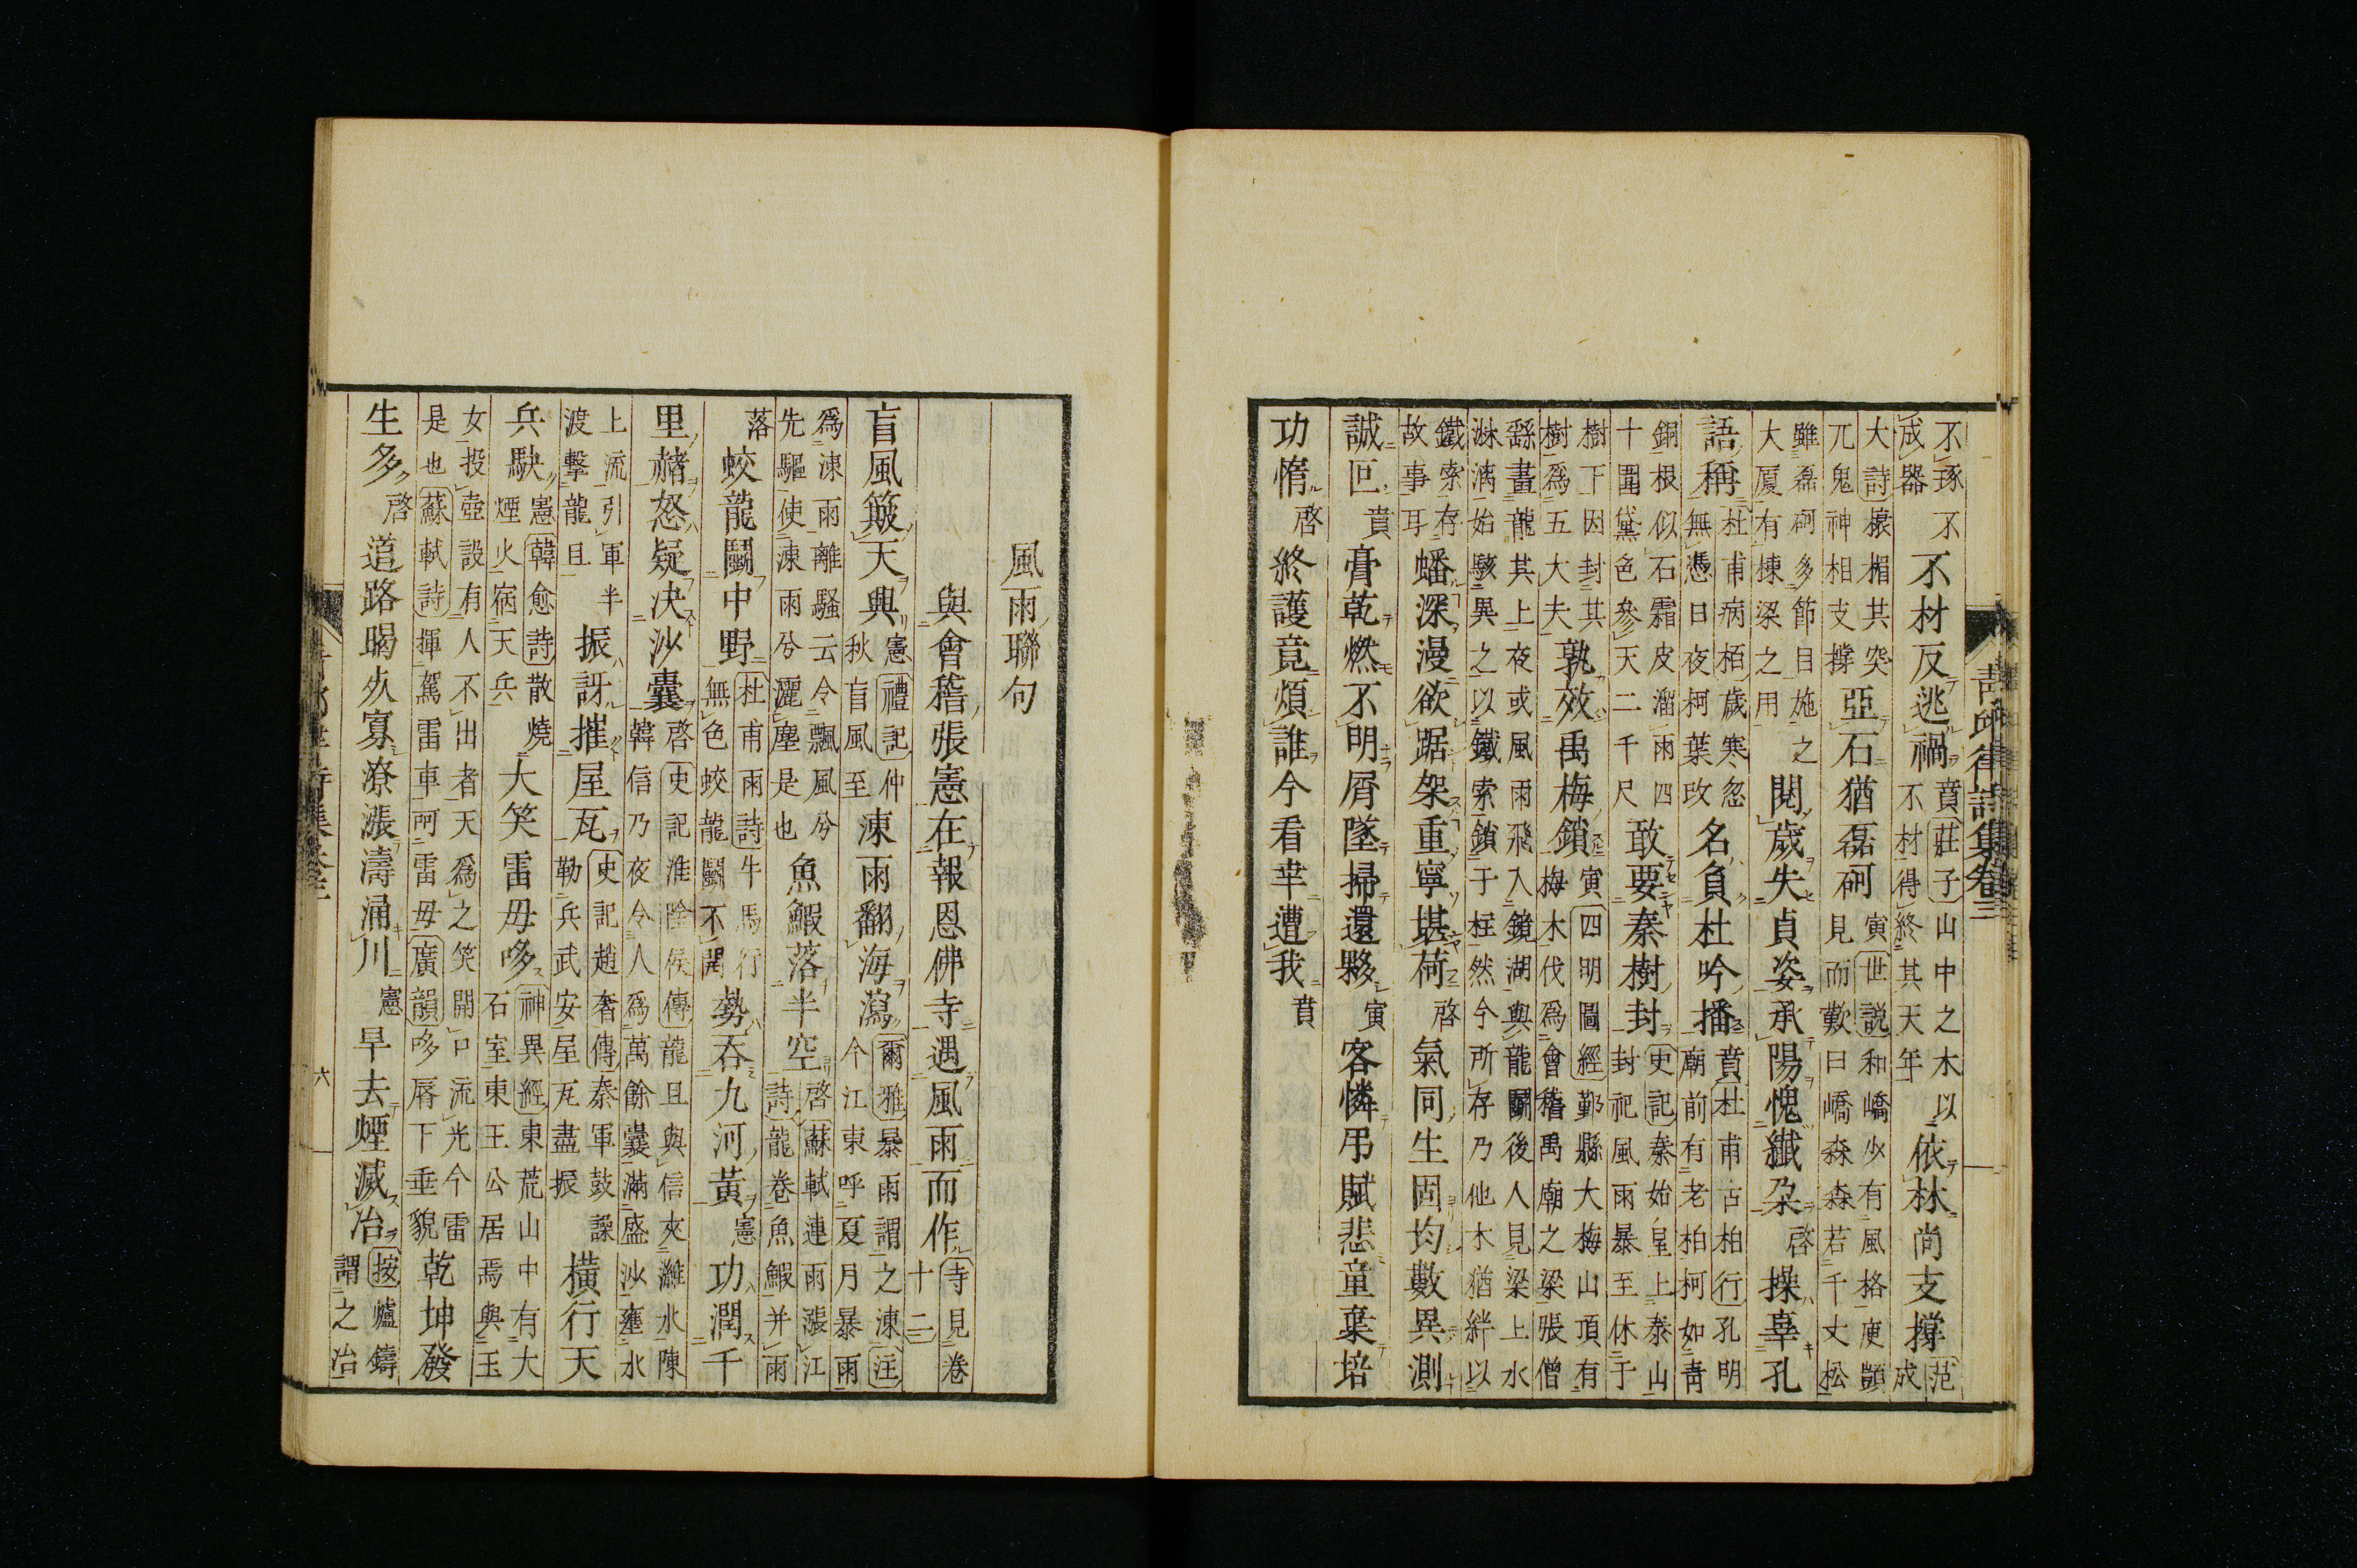 靑邱律詩集卷三
不琢不
成器
不材反逃禍
賁莊子山中之木以
不材得終其天年
依林尚支撐
范
成
大詩榱楣其突
兀鬼神相支撐
亞石猶磊砢
寅世説和嶠少有風格庾顗
見而歎曰嶠森森若千丈松
雖磊砢多節目施之
大厦有棟梁之用
閲歲失貞姿承陽愧纖朶
啓
操辜孔
語稱
杜甫病栢歲寒忽
無憑日夜柯葉改
名負杜吟播
賁杜甫古柏行孔明
廟前有老柏柯如青
銅根似石霜皮溜雨四
十圍黛色參天二千尺
敢要秦樹封
史記秦始皇上泰山
封祀風雨暴至休于
樹下因封其
樹爲五大夫
孰效禹梅鎖
寅四明圖經鄞縣大梅山頂有
梅木伐爲會稽禹廟之梁張僧
繇畫龍其上夜或風雨飛入鏡湖與龍鬭後人見梁上水
淋漓始駭異之以鐵索鎖于柱然今所存乃他木猶絆以
鐵索存
故事耳
蟠深漫欲踞架重寧堪荷
啓
氣同生固均數異測
誠叵
賁
膏乾燃不明屑墜掃還夥
寅
客憐弔賦悲童棄培
功惰
啓
終護竟煩誰今看幸遭我
賁
風雨聯句
與會稽張憲在報恩佛寺遇風雨而作
寺見卷
十二
盲風簸天輿
憲禮記仲
秋盲風至
涷雨翻海瀉
爾雅暴雨謂之涷注
今江東呼夏月暴雨
爲涷雨離騷云令飄風兮
先驅使涷雨兮灑塵是也
魚鰕落半空
啓蘇軾連雨漲江
詩龍卷魚鰕并雨
落
蛟龍鬭中野
杜甫雨詩牛馬行
無色蛟龍鬭不開
勢吞九河黃
憲
功潤千
里赭怒疑决沙囊
啓史記淮陰侯傳龍且與信夾濰水陳
韓信乃夜令人爲萬餘囊滿盛沙壅水
上流引軍半
渡擊龍且
振訝摧屋瓦
史記趙奢傳秦軍鼓譟
勒兵武安屋瓦盡振
橫行天
兵駃
憲韓愈詩散燒
煙火宿天兵
大笑雷毋哆
神異經東荒山中有大
石室東王公居焉與玉
女投壺設有人不出者天爲之笑開口流光今雷
是也蘇軾詩揮駕雷車呵雷毋廣韻哆唇下垂貌
乾坤發
生多
啓
道路暍仆寡潦漲濤涌川
憲
旱去煙滅冶
按爐鑄
謂之冶
六